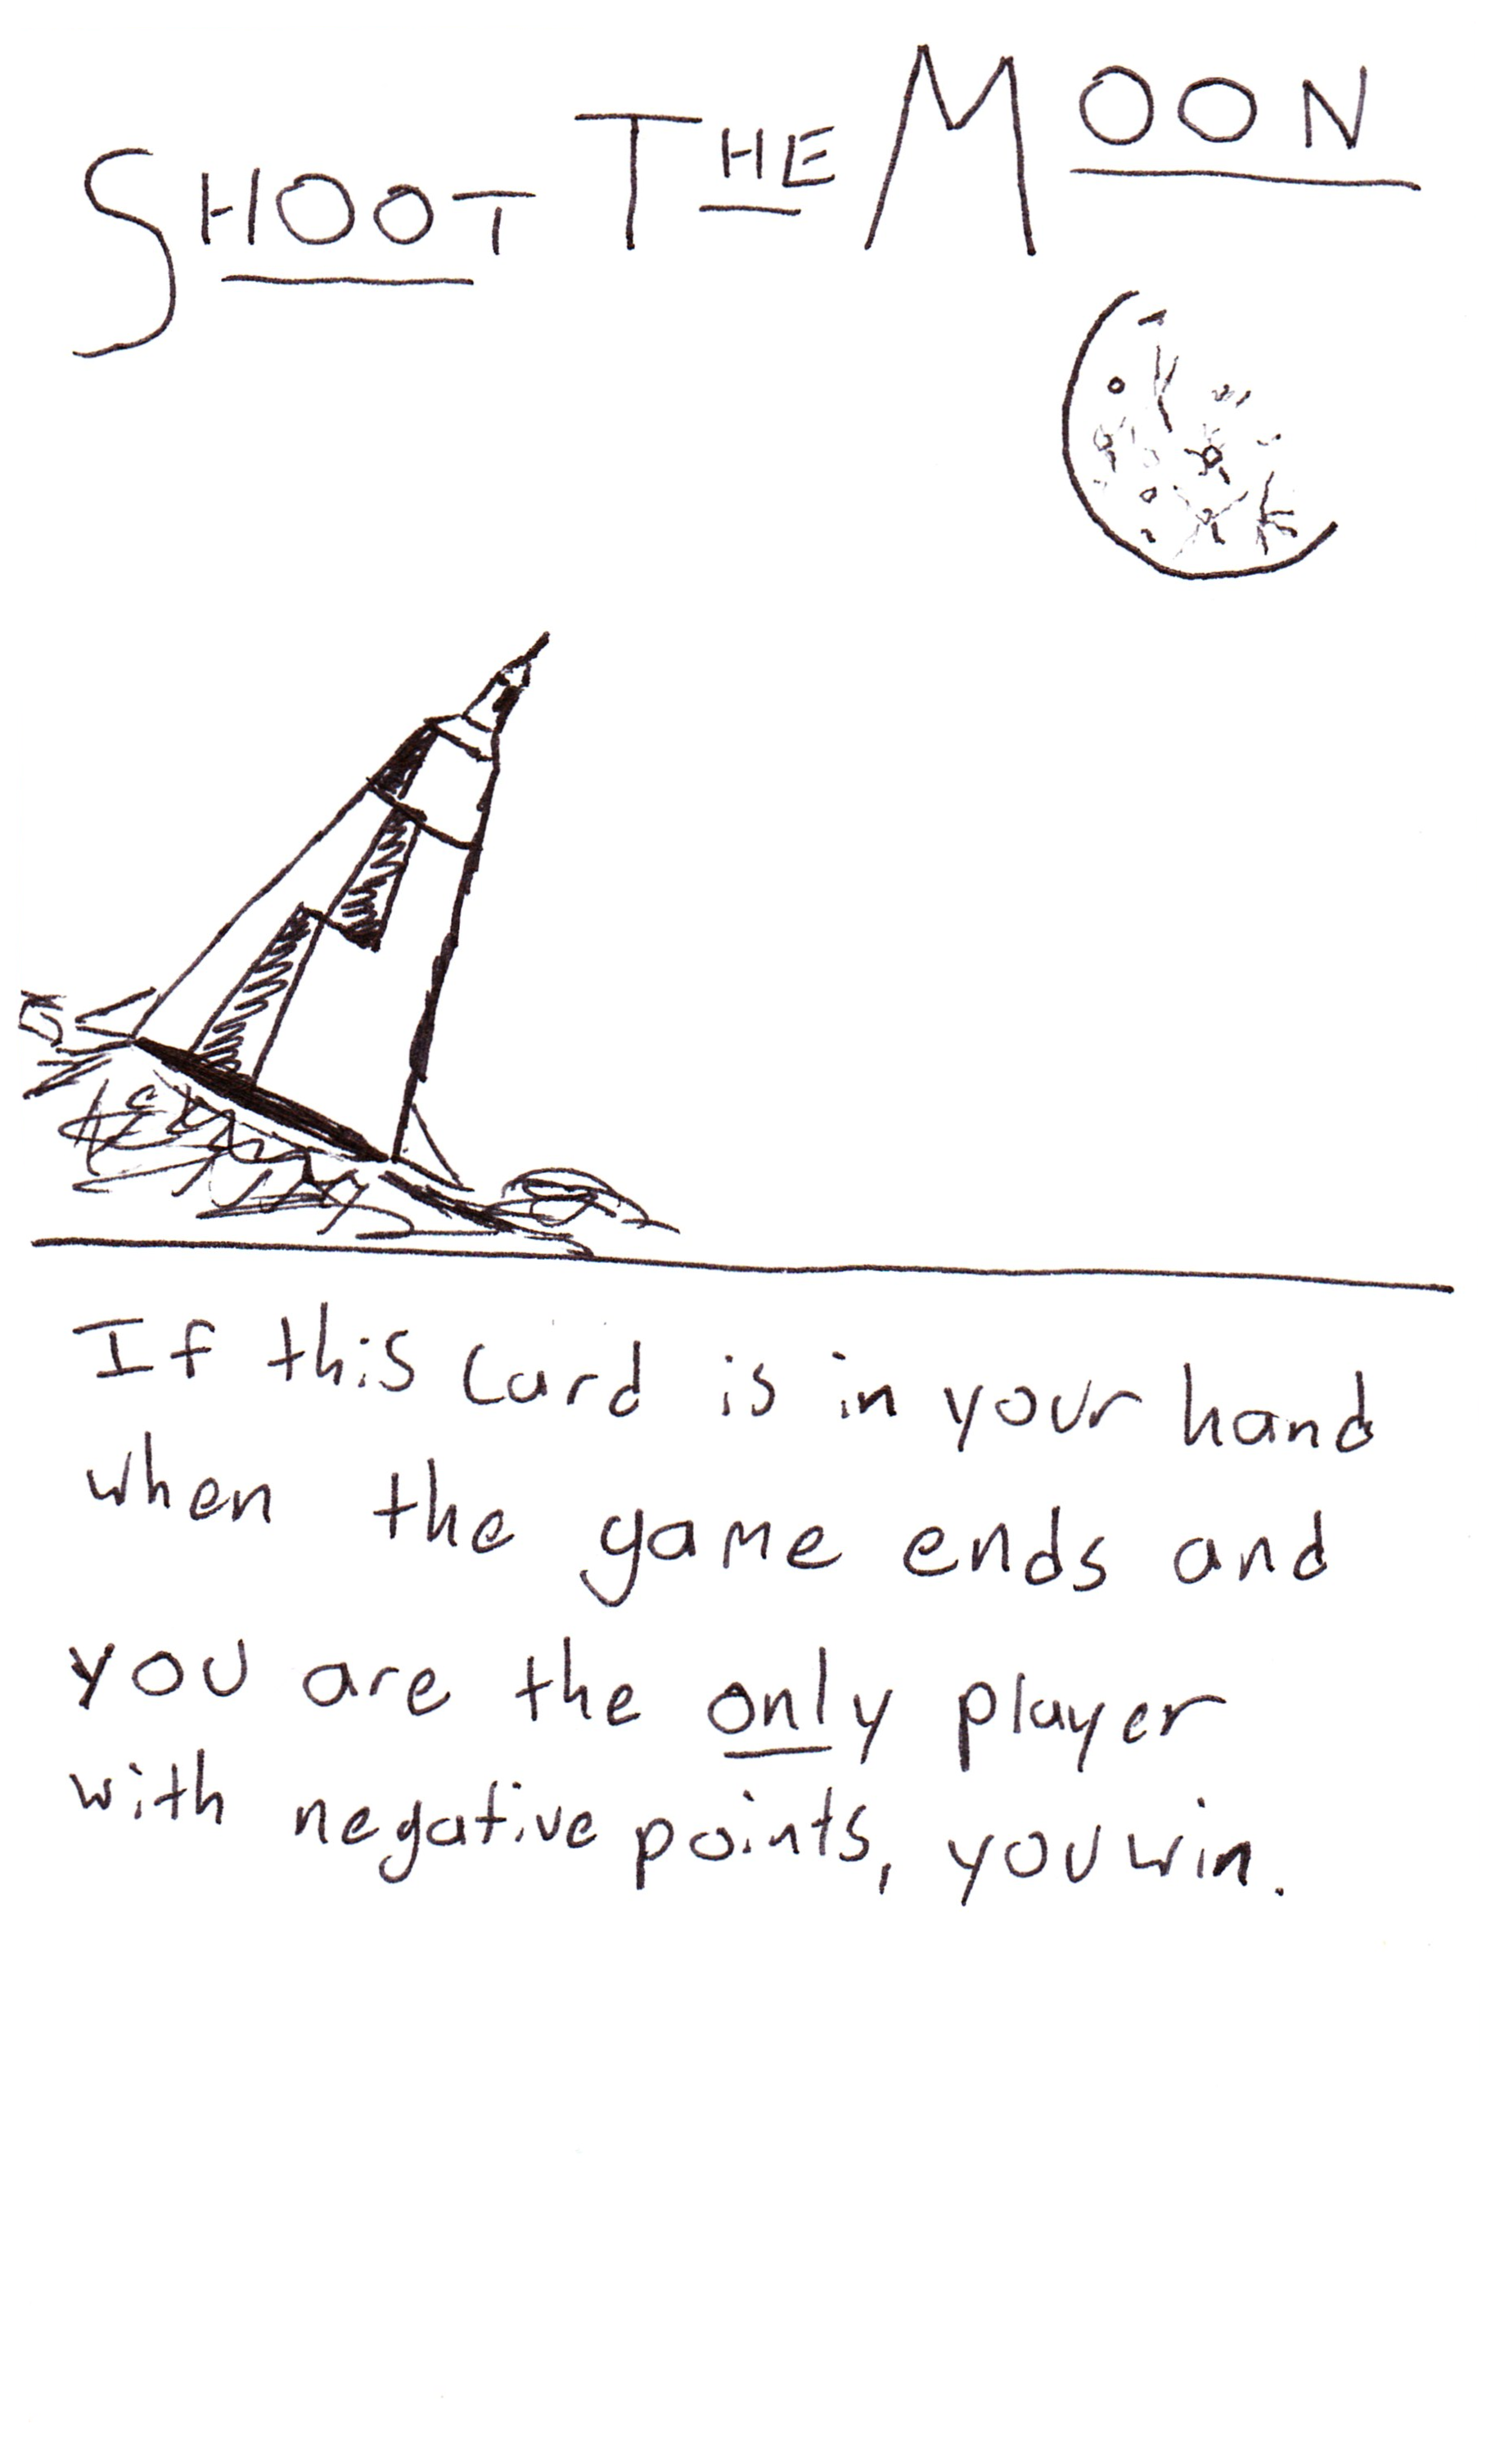 SHOOT THE MOON
If this card is in your hand
when the game ends and
you are the only player
with negative points, you win.